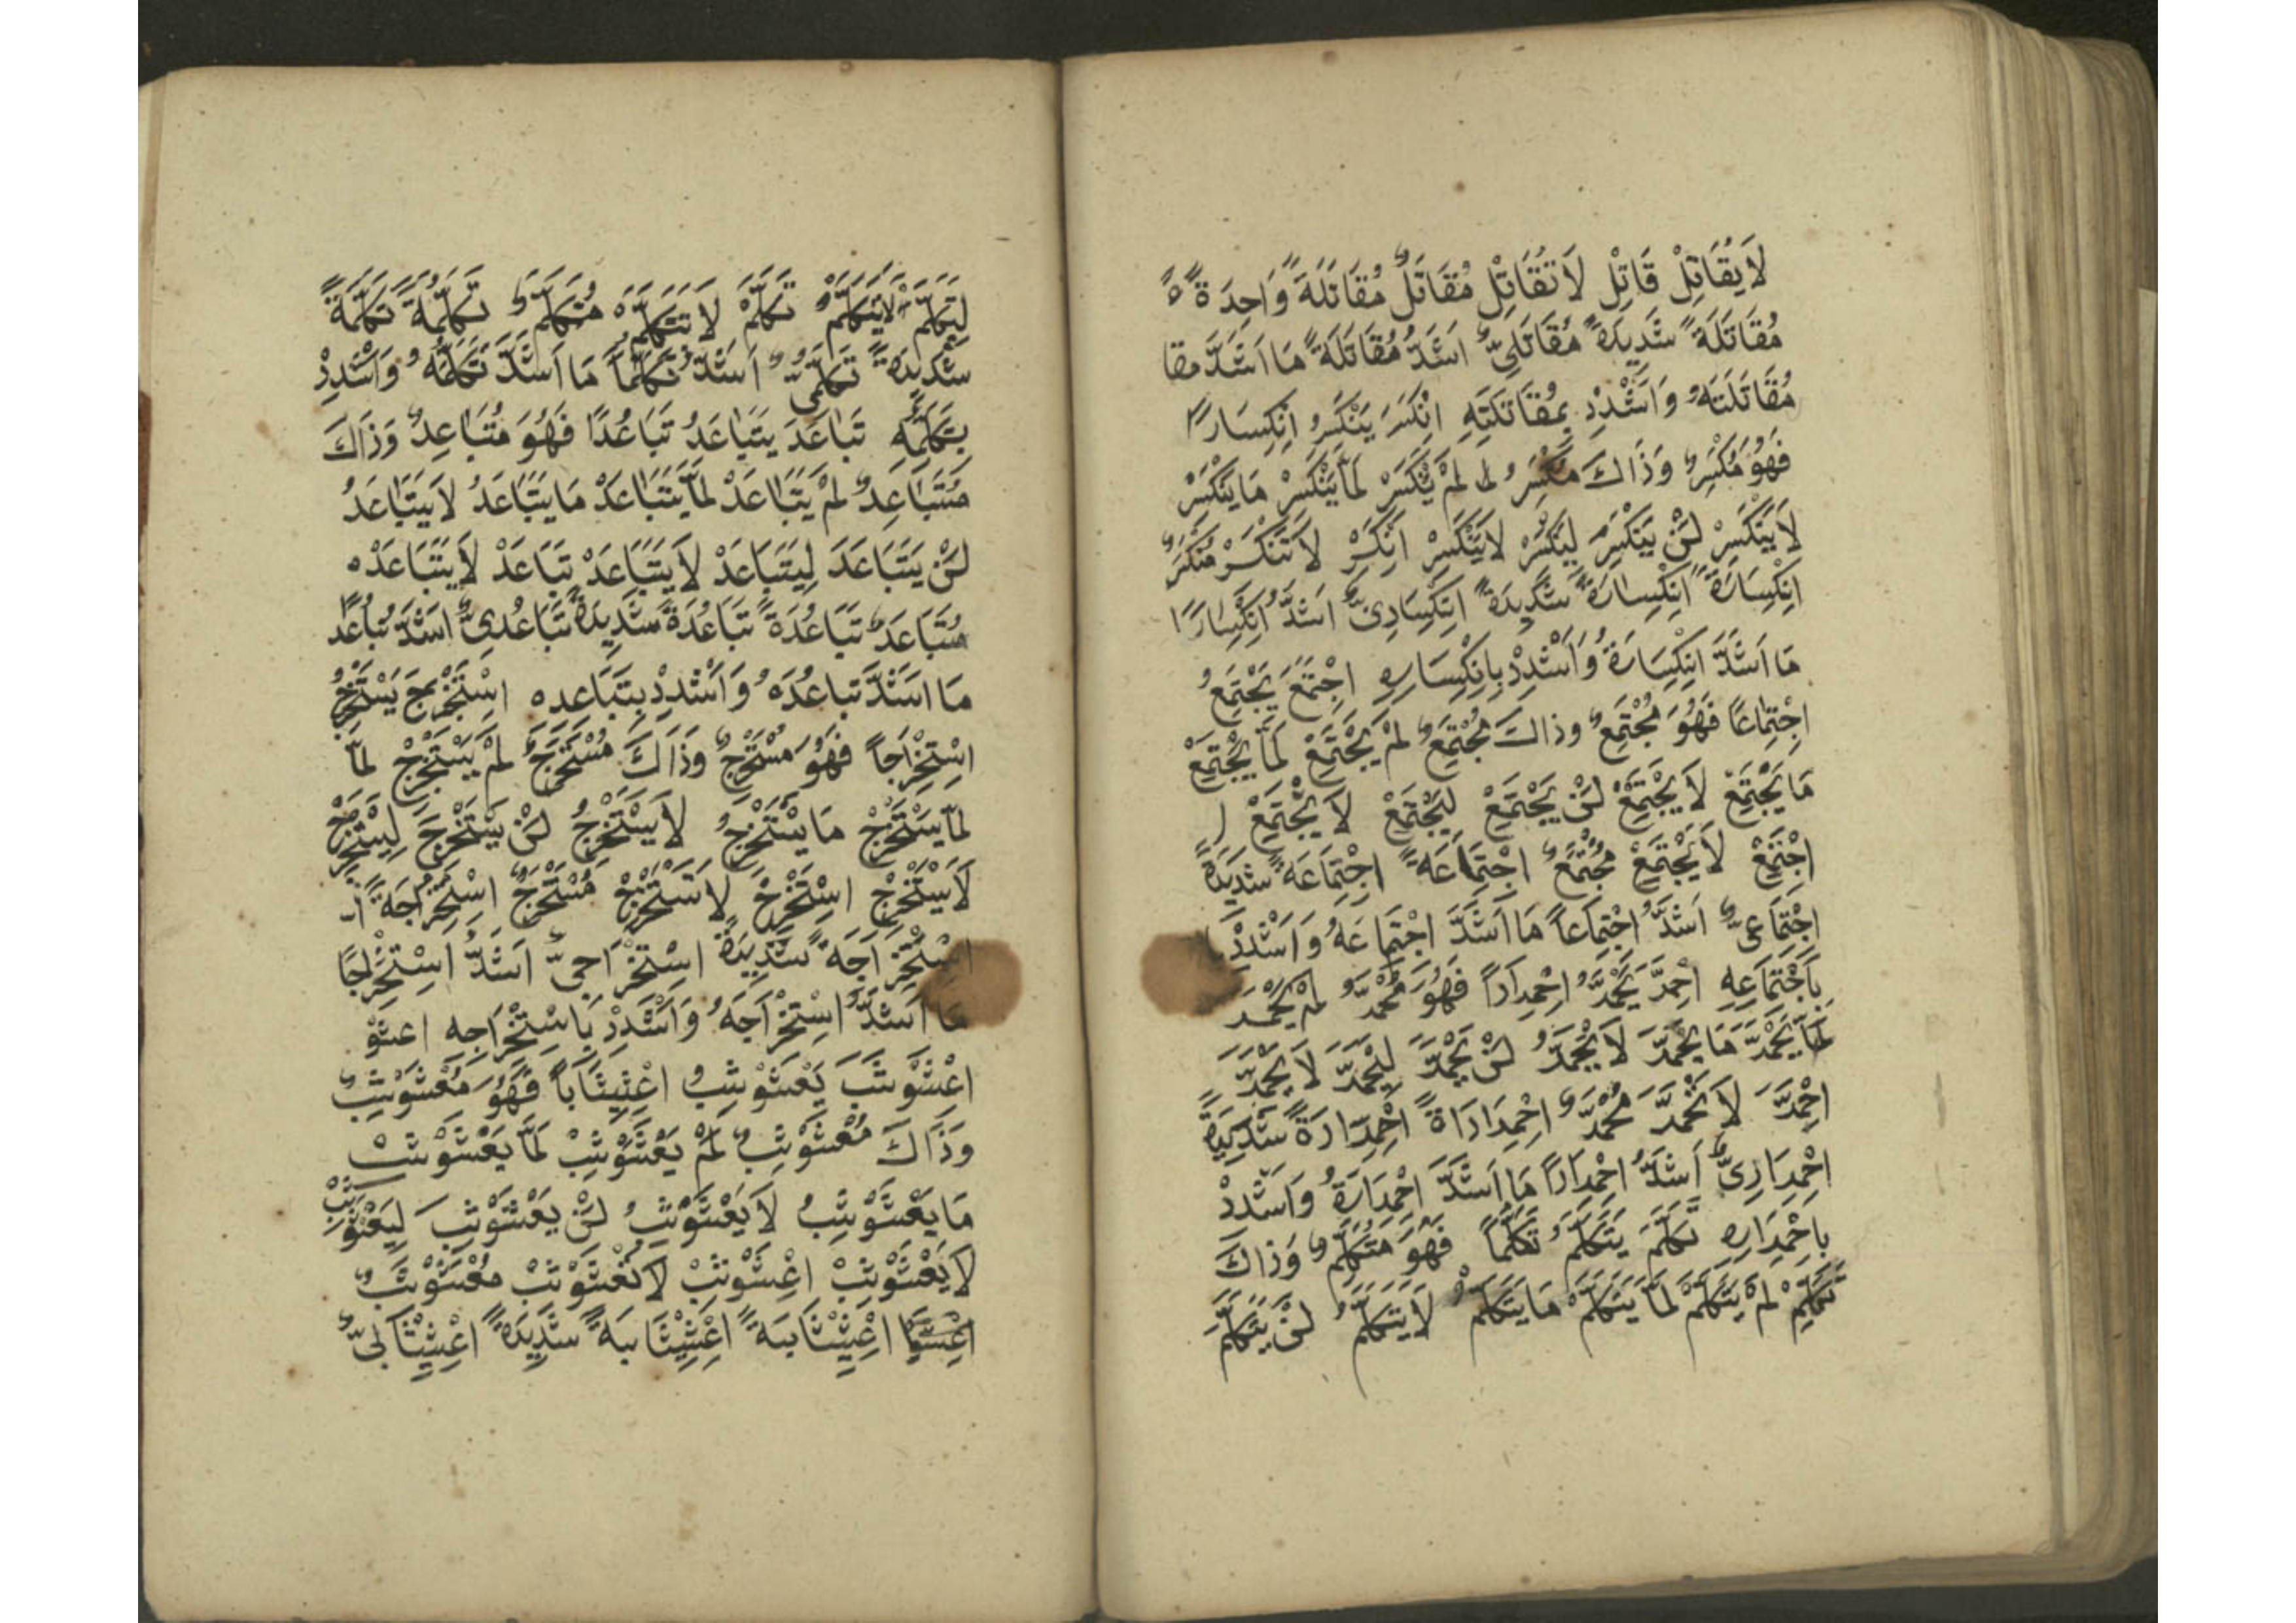 لَا يُقَاتِلْ قَاتِلْ لَا تُقَاتِلْ مُقَاتَلٌ مُقَاتَلَةً وَاحِدَةً
مُقَاتَلَةً شَدِيدَةً مُقَاتَلِيٌّ اَشَدُّ مُقَاتَلَةً مَا اَشَدَّ مقا
مُقَاتَلَتَهُ وَاَشْدِدْ بِمُقَاتَلَتِهِ اِنْكَسَرَ يَنْكَسِرُ اِنْكِسَارًا
فَهُوَ مُنْكَسِرٌ وَذَاكَ مُنْكَسَرٌ لَمْ يَنْكَسِرْ لَمَّا يَنْكَسِرْ مَا يَنْكَسِرُ
لَا يَنْكَسِرُ لَنْ يَنْكَسِرَ لِيَنْكَسِرْ لَا يَنْكَسِرْ اِنْكَسِرْ لَا تَنْكَسِرْ مُنْكَسَرٌ
اِنْكِسَارَةً اِنْكِسَارَةً شَدِيدَةً اِنْكِسَارِيٌّ اَشَدُّ اِنْكِسَارًا
مَا اَشَدَّ اِنْكِسَارَهُ وَاَشْدِدْ بِانْكِسَارِهِ اِجْتَمَعَ يَجْتَمِعُ
اِجْتِمَاعًا فَهُوَ مُجْتَمِعٌ وذاكَ مُجْتَمَعٌ لَمْ يَجْتَمِعْ لَمَّا يَجْتَمِعْ
مَا يَجْتَمِعْ لَا يَجْتَمِعُ لَنْ يَجْتَمِعْ لِيَجْتَمِعْ لَا يَجْتَمِعْ
اِجْتَمِعْ لَا يَجْتَمِعْ مُجْتَمَعٌ اِجْتِمَاعَةً اِجْتِمَاعَةً شَدِيدَةً
اِجْتِمَاعِيٌّ اَشَدُّ اِجْتِمَاعًا مَا اَشَدَّ اِجْتِمَاعَهُ وَاَشْدِدْ
بِاجْتِمَاعِهِ اِحْمَدَّ يَحْمَدُّ اِحْمِدَادًا فَهُوَ مُحْمَدٌّ لَمْ يَحْمَد
لَمَّا يَحْمَدَّ مَا يَحْمَدُّ لَا يَحْمَدُّ لَنْ يَحْمَدَّ لِيَحْمَدَّ لَا يَحْمَدَّ
اِحْمَدَّ لَا تَحْمَدَّ مُحْمَدٌّ اِحْمِدَادَاةً اِحْمِدَارَةً شَدِيدَةً
اِحْمِدَارِيٌّ اَشَدُّ اِحْمِدَارًا مَا اَشَدَّ اِحْمِدَارَهُ وَاَشْدِدْ
بِاحْمِدَارِهِ تَكَلَّمَ يَتَكَلَّمُ تَكَلُّمًا فَهُوَ مُتَكَلِّمٌ وَذَاكَ
لَمْ يَتَكَلَّمْ لَمَّا يَتَكَلَّمْ مَا يَتَكَلَّمُ لَا يَتَكَلَّمُ لَنْ يَتَكَلَّمَ
لِيَتَكَلَّمْ لَا يَتَكَلَّمْ تَكَلَّمْ لَا تَتَكَلَّمْ مُتَكَلَّمٌ تَكَلُّمَةً تَكَلُّمَةً
شَدِيدَةً تَكَلُّمِيٌّ اَشَدُّ تَكَلُّمًا مَا اَشَدَّ تَكَلُّمَهُ وَاَشْدِدْ
بِتَكَلُّمِهِ تَبَاعَدَ يَتَبَاعَدُ تَبَاعُدًا فَهُوَ مُتَبَاعِدٌ وَذَاكَ
مُتَبَاعَدٌ لَمْ يَتَبَاعَدْ لَمَّا يَتَبَاعَدْ مَا يَتَبَاعَدُ لَا يَتَبَاعَدُ
لَنْ يَتَبَاعَدَ لِيَتَبَاعَدْ لَا يَتَبَاعَدْ تَبَاعَدْ لَا يَتَبَاعَدْ
مُتَبَاعَدٌ تَبَاعُدَةً تَبَاعُدَةً شَدِيدَةً تَبَاعُدِيٌّ اَشَدُّ تَبَاعُدًا
مَا اَشَدَّ تَبَاعُدَهُ وَاَشْدِدْ بِتَبَاعُدِهِ اِسْتَخْرَجَ يَسْتَخْرِجُ
اِسْتِخْرَاجًا فَهُوَ مُسْتَخْرِجٌ وَذَاكَ مُسْتَخْرَجٌ لَمْ يَسْتَخْرِجْ لَمَّا
لَمَّا يَسْتَخْرِجْ مَا يَسْتَخْرِجُ لَا يَسْتَخْرِجُ لَنْ يَسْتَخْرِجَ لِيَسْتَخْرِجْ
لَا يَسْتَخْرِجْ اِسْتَخْرِجْ لَا تَسْتَخْرِجْ مُسْتَخْرَجٌ اِسْتِخْرَاجَةً
اِسْتِخْرَاجَةً شَدِيدَةً اِسْتِخْرَاجِيٌّ اَشَدُّ اِسْتِخْرَاجًا
مَا اَشَدَّ اِسْتِخْرَاجَهُ وَاَشْدِدْ بِاسْتِخْرَاجِهِ اعشو
اِعْشَوْشَبَ يَعْشَوْشِبُ اِعْشِيشَابًا فَهُوَ مُعْشَوْشِبٌ
وَذَاكَ مُعْشَوْشَبٌ لَمْ يَعْشَوْشِبْ لَمَّا يَعْشَوْشِبْ
مَا يَعْشَوْشِبُ لَا يَعْشَوْشِبُ لَنْ يَعْشَوْشِبَ لِيَعْشَوْشِبْ
لَا يَعْشَوْشِبْ اِعْشَوْشِبْ لَا تَعْشَوْشِبْ مُعْشَوْشَبٌ
اِعْشِيشَابَةً اِعْشِيشَابَةً شَدِيدَةً اِعْشِيشَابِيٌّ